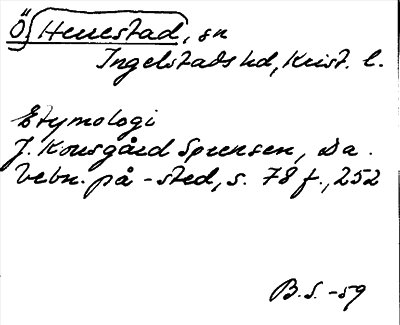 Ö Herrestad, sn
Ingelstads hd, Krist. l.
Etymologi
J. Kousgård Sørensen, Da.
bebn. på -sted, s. 78 f., 252
B.S. -59